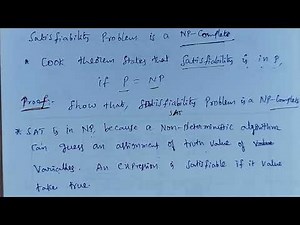 Satisfiability Problem is a NP-Complete
* Cook theorem states that Satisfiability is in P,
if P = NP
Proof:- Show that, Satisfiability Problem is a NP-Complete
SAT
* SAT is in NP, because a Non-deterministic algorithm
can guess an assignment of truth value of value
Variables. An expression is Satisfiable if it value
take true.